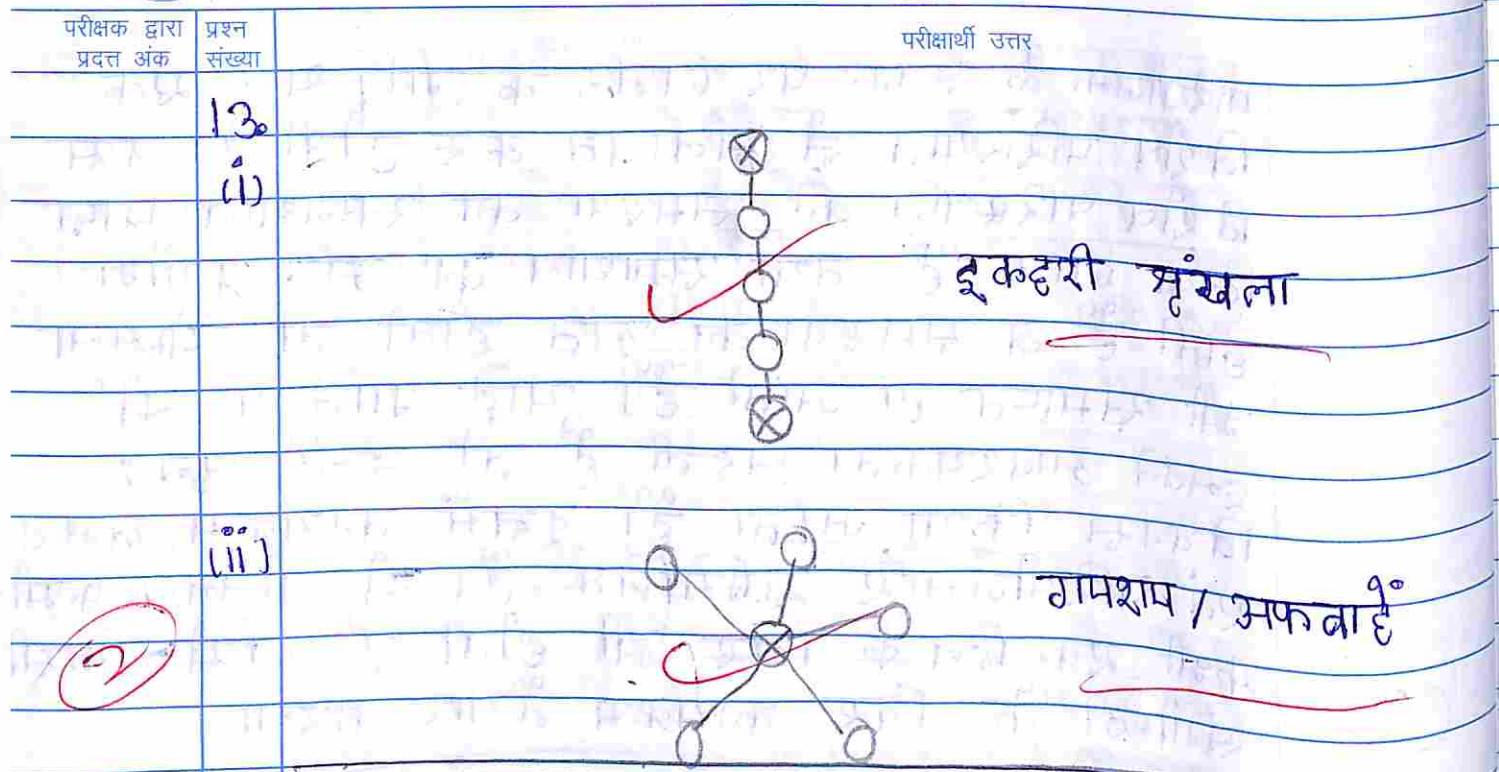 परीक्षक द्वारा प्रदत्त अंक
प्रश्न संख्या
परीक्षार्थी उत्तर
13.
(i)
इकहरी श्रृंखला
(ii)
गपशप / अफवाहें
2